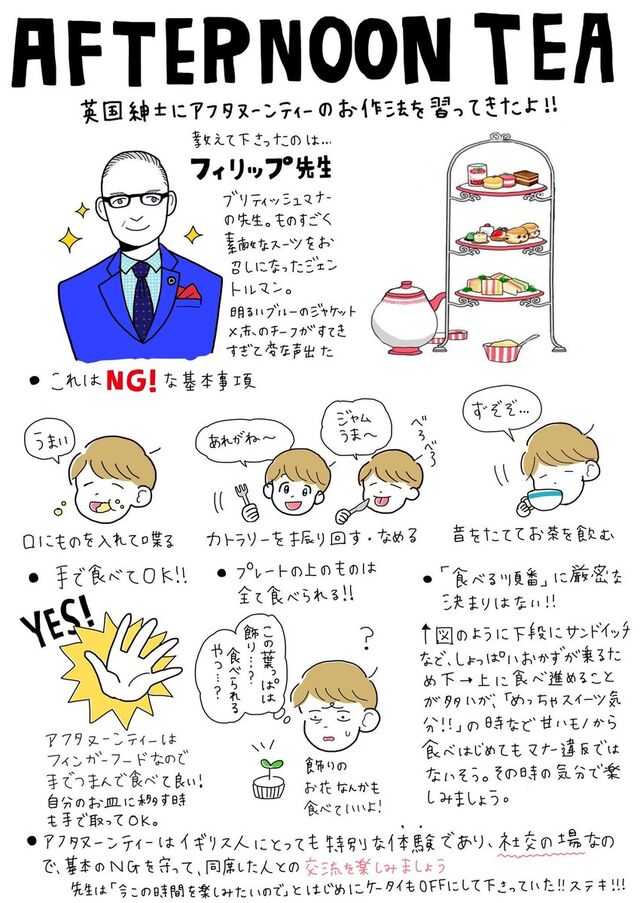 AFTERNOON TEA
英国紳士にアフタヌーンティーのお作法を習ってきたよ!!
教えて下さったのは…
フィリップ先生
ブリティッシュマナー
の先生。ものすごく
素敵なスーツをお
召しになったジェン
トルマン。
明るいブルーのジャケット
×赤のチーフがすてき
すぎて変な声出た
● これはNG!な基本事項
うまい
口にものを入れて喋る
あれがね〜
ジャム
うま〜
べろべろ
カトラリーを振り回す・なめる
ずぞぞ…
音をたててお茶を飲む
● 手で食べてOK!!
YES!
アフタヌーンティーは
フィンガーフードなので
手でつまんで食べて良い!
自分のお皿に移す時
も手で取ってOK。
● プレートの上のものは
全て食べられる!!
この葉っぱは
飾り…?
食べられる
やつ…?
?
飾りの
お花なんかも
食べていいよ!
● 「食べる順番」に厳密な
決まりはない!!
↑図のように下段にサンドイッチ
など、しょっぱいおかずが乗るた
め下→上に食べ進めること
が多いが、「めっちゃスイーツ気
分!!」の時など甘いモノから
食べはじめてもマナー違反では
ないそう。その時の気分で楽
しみましょう。
● アフタヌーンティーはイギリス人にとっても特別な体験であり、社交の場なの
で、基本のNGを守って、同席した人との交流を楽しみましょう
先生は「今この時間を楽しみたいので」とはじめにケータイもOFFにして下さっていた!!ステキ!!!